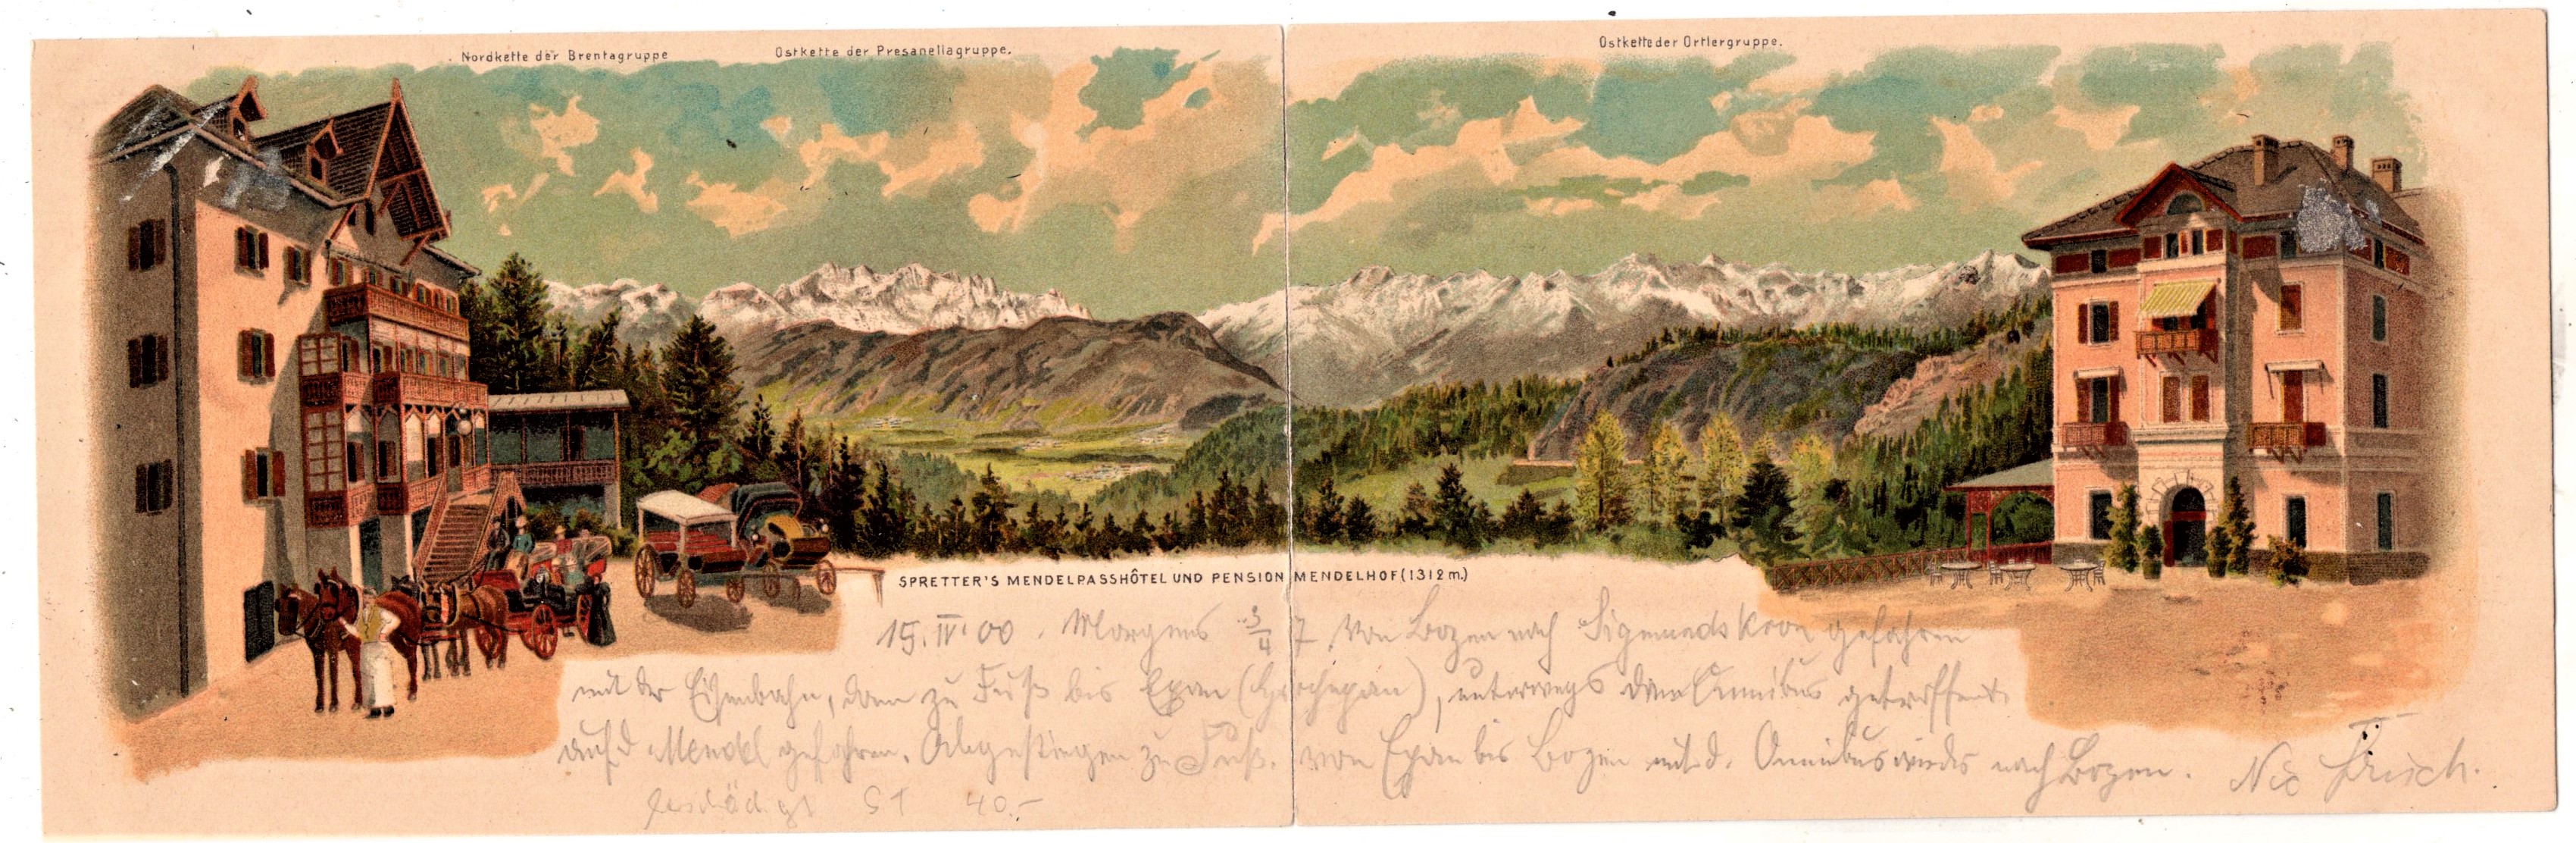 Nordkette der Brentagruppe
Ostkette der Presanellagruppe.
Ostkette der Ortlergruppe.
SPRETTER'S MENDELPASSHÔTEL UND PENSION MENDELHOF (1312 m.)
19. IV. 00. Morgens 3/4 7 von Bozen nach Sigmundskron gefahren
mit der Eisenbahn, dann zu Fuß bis Eppan (), unterwegs Omnibus getroffen
auf d. Mendel gefahren. Abgestiegen zu Fuß. von Eppan bis Bozen mit d. Omnibus wieder nach Bozen.
beschädigt ST 40.-